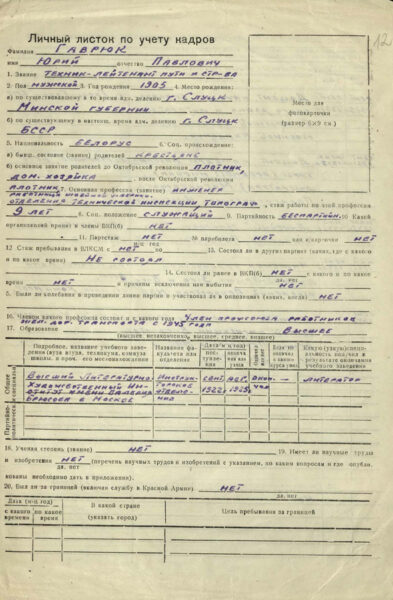 12
Личный листок по учету кадров
Фамилия ГАВРЮК
имя ЮРИЙ отчество ПАВЛОВИЧ
1. Звание ТЕХНИК-ЛЕЙТЕНАНТ ПУТИ И СТР-ВА
2. Пол МУЖСКОЙ 3. Год рождения 1905 4. Место рождения:
а) по существовавшему в то время адм. делению г. СЛУЦК
МИНСКОЙ ГУБЕРНИИ
б) по существующему в настоящ. время адм. делению г. СЛУЦК
БССР.
Место для
фотокарточки
(размер 6х9 см.)
5. Национальность БЕЛОРУС 6. Соц. происхождение:
а) бывш. сословие (звание) родителей КРЕСТЬЯНЕ
б) основное занятие родителей до Октябрьской революции ПЛОТНИК,
ДОМ. ХОЗЯЙКА, после Октябрьской революции
ПЛОТНИК 7. Основная профессия (занятие) ИНЖЕНЕР
ОТДЕЛЕНИЯ ТЕХНИЧЕСКОЙ ИНСПЕКЦИИ, стаж работы по этой профессии
9 ЛЕТ 8. Соц. положение СЛУЖАЩИЙ 9. Партийность БЕСПАРТИЙН. 10 Какой
организацией принят в члены ВКП(б) НЕТ
11. Партстаж НЕТ № партбилета НЕТ или к/карточки НЕТ
12 Стаж пребывания в ВЛКСМ с НЕТ по 13. Состоял ли в других партиях (каких, где с какого
и по какое время) НЕ СОСТОЯЛ
14. Состоял ли ранее в ВКП(б) НЕТ с какого и по какое
да, нет
время НЕТ и причины исключения или выбытия НЕТ
15. Были ли колебания в проведении линии партии и участвовал ли в оппозициях (каких, когда) НЕТ
16. Членом какого профсоюза состоит и с какого года ЧЛЕН ПРОФСОЮЗА РАБОТНИКОВ
ЖЕЛ. ДОР. ТРАНСПОРТА С 1945 ГОДА
17. Образование ВЫСШЕЕ
(высшее, незаконченно, высшее, среднее, низшее)
Подробное, название учебного заве-
дения
Название фа-
культета или
отделения
Дата и год
Общее
специальное
ВЫСШИЙ ЛИТЕРАТУРНО-
ХУДОЖЕСТВЕННЫЙ ИН-
СТИТУТ ИМЕНИ ВАЛЕРИЯ
БРЮСОВА В МОСКВЕ
ОТДЕЛЕ-
НИЕ
СЕНТ.
1922
1925
ОКОН-
ЧИЛ
—
ЛИТЕРАТОР
18. Ученая степень (звание) НЕТ 19. Имеет ли научные труды
и изобретения НЕТ (перечень научных трудов и изобретений с указанием, по каким вопросам и где опубли
да, нет
кованы необходимо дать в приложении).
20. Был ли за границей (включая службу в Красной Армии) НЕТ
да, нет
Дата (м-ц и год)
с какого
времени
по какое
время
В какой стране
(указать город)
Цель пребывания за границей